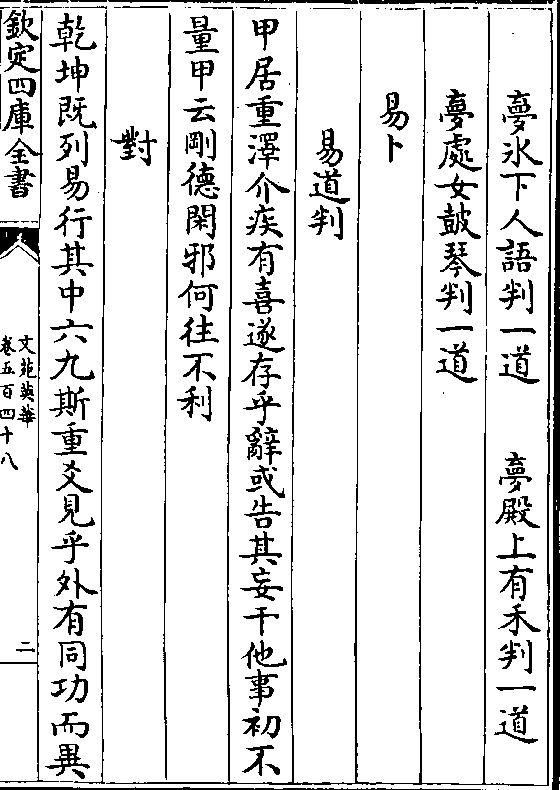 夢氷下人語判一道　夢殿上有禾判一道
夢處女鼓琴判一道
易卜
易道判
甲居重澤介疾有喜遂存乎辭或告其妄干他事初不
量甲云剛德閑邪何往不利
對
乾坤既列易行其中六九斯重爻見乎外有同功而異
欽定四庫全書
文苑英華
卷五百四十八
二